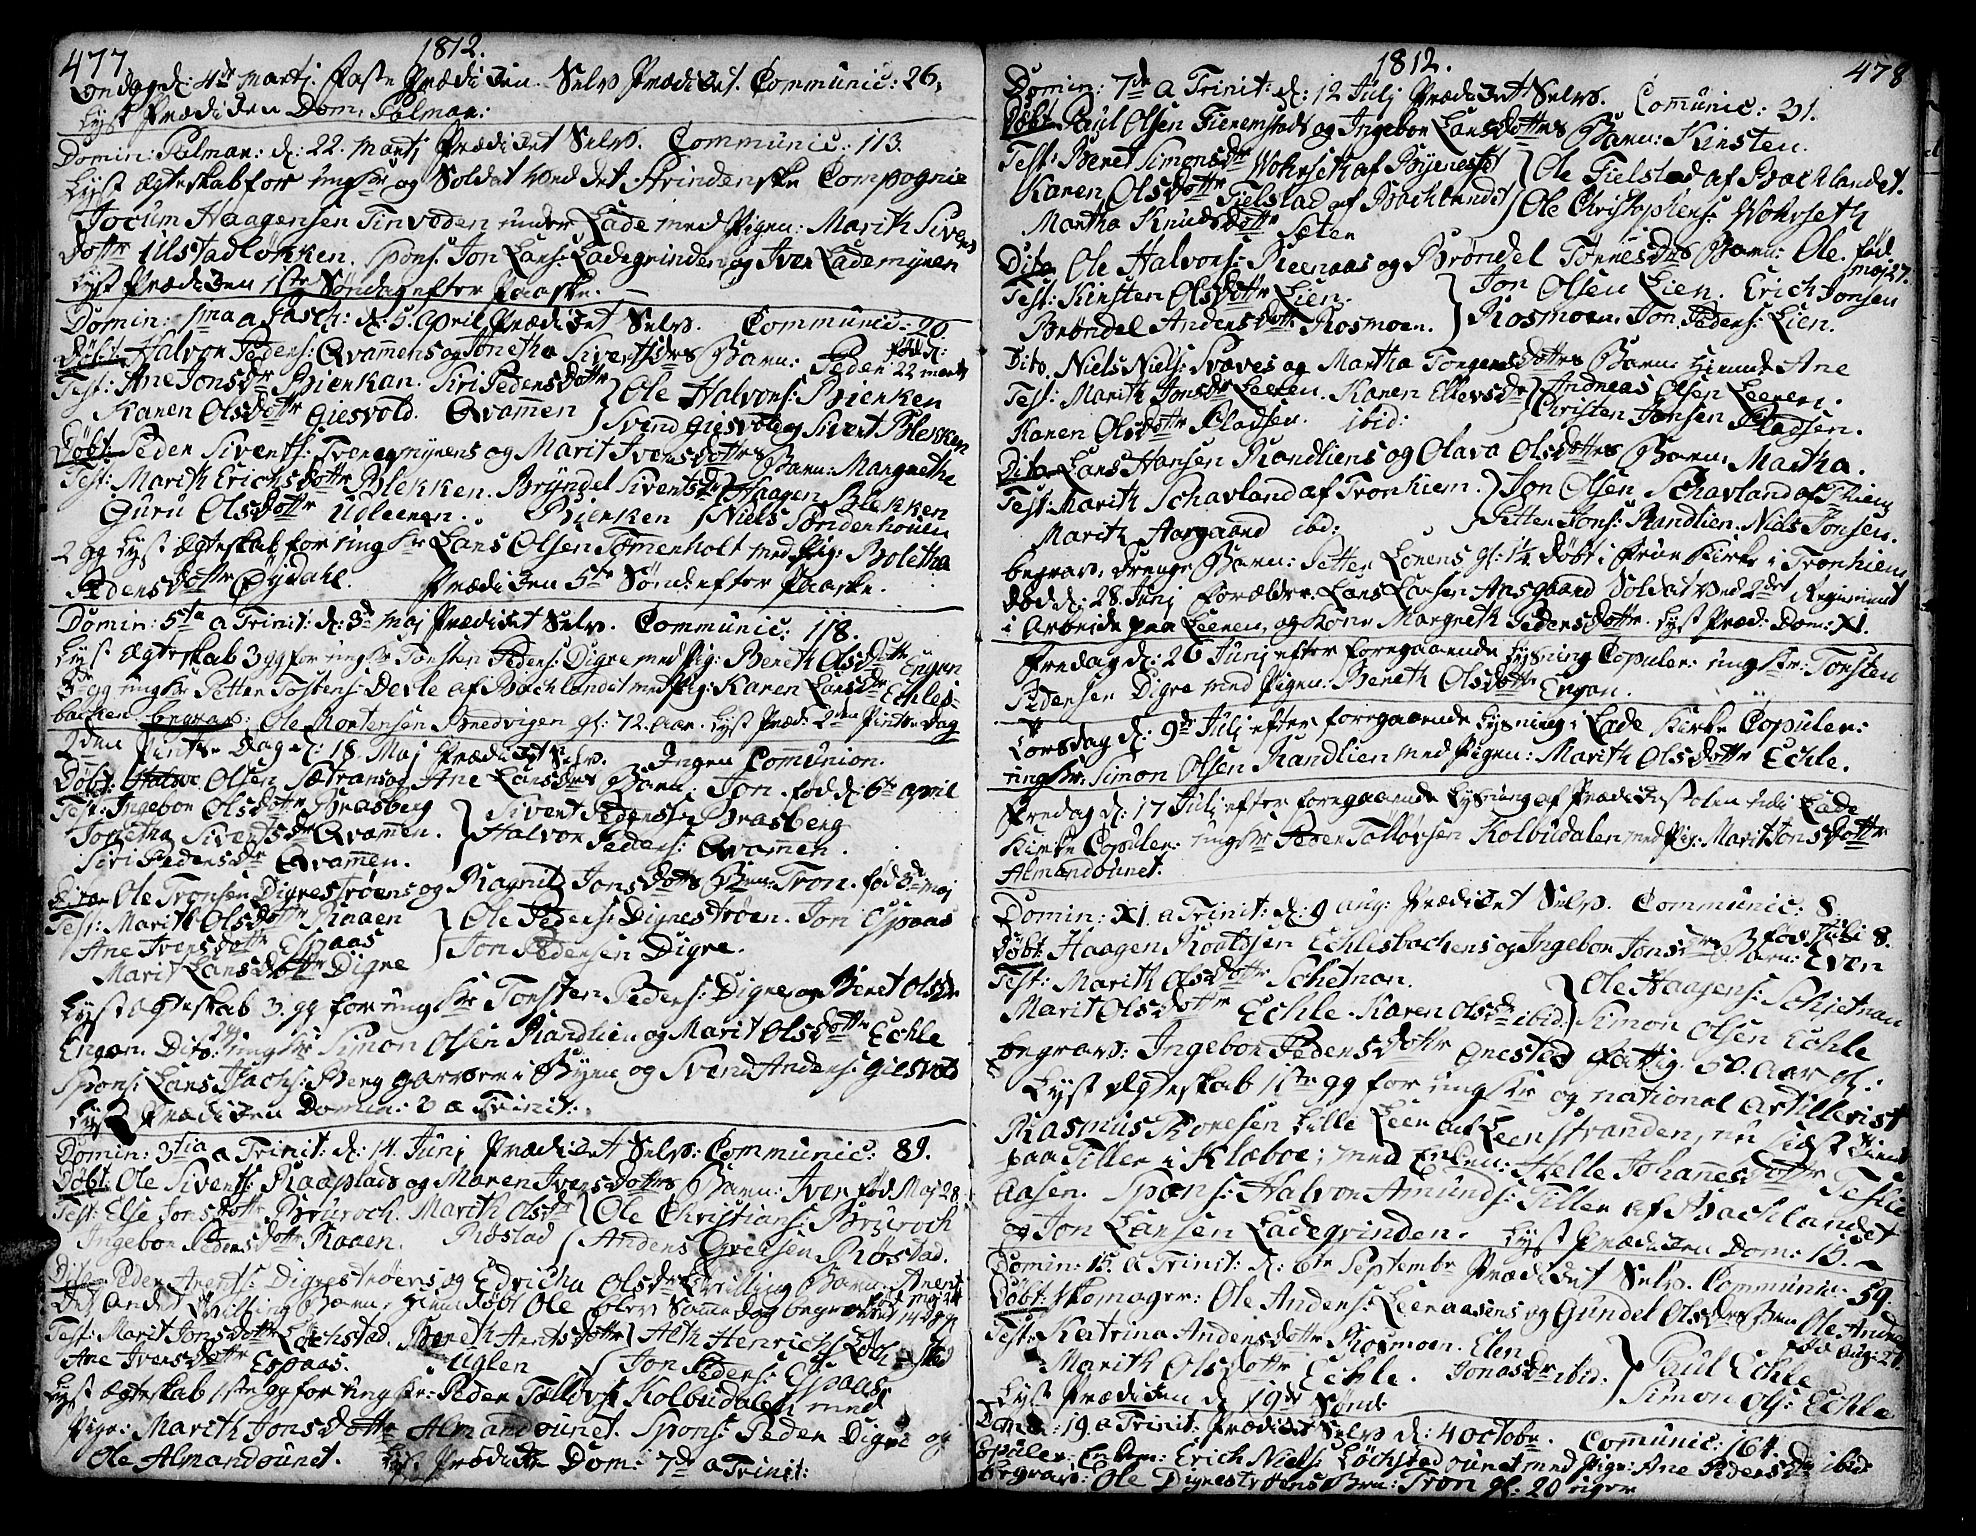 477
1812.
Onsdag d: 4de Martj. Faste Prædiken. Selv Prædiket. Communic: 26.
Lyst Prædiken Dom: Palmar:
Domin: Palmar: d: 22. Martj Prædiket Selv. Communic: 113.
Lyst Ægteskab for ungkr og Soldat ved det Strindenske Compagnie
Jocum Haagensen Tinveden under Lade med Pigen: Marith Sivers
dottr Ulstadløkken. Spons. Jon Lars: Ladegrinden og Iver Lademyren
Lyst Prædiken 1ste Søndag efter Paaske.
Domin: 1ma a Pasch: d: 5. April Prædiket Selv. Communic: 20
Døbt Halvor Peders: Qvamens og Jonetha Sivertsdrs Barn: Peder fød d: 22 marti
Test: Ane Jonsdr Bierkan. Siri Pedersdottr } Ole Halvors: Bierken
Karen Olsdottr Giesvold. Qvamen } Svend Giesvold og Sivert Blekken
Døbt: Peder Siverts: Svenegrynens og Marit Iversdottrs Barn: Margrethe
Test: Marith Erichsdottr Blekken. Bryndel Sivertsdr } Haagen Blekken
Guru Olsdottr Udleeren. Bierken } Niels
2 gg Lyst Ægteskab for ungkr Lars Olsen Tømmerholt med Pig: Bolitha
Pedersdottr Øysdahl. Prædiken 5te Sønd. efter Paaske.
Domin: 5ta a Trinit: d: 3d Maj Prædiket Selv. Communic: 118.
Lyst Ægteskab 3 gg for ungkr Torsten Peders: Digre med Pig: Bereth Olsdottr Engan
3die gg ungkr Petter Tostens: Devle af Bachlandet med Pig: Karen Larsdr Echles-
bachen begrav: Ole Mortensen Bredvigen gl: 72 Aar. Lyst Præd: 2den Pintse Dag
2den Pintse Dag d: 18. Maj Prædiket Selv. Ingen Communion.
Døbt: Olsen Sætrans og Ane Larsdrs Barn: Jon. fød d: 6te april
Test: Ingebor Olsdottr Brasberg } Sivert Pedersen Brasberg
Jonetha Sivertsdr Qvamen. } Halvor Peders: Qvamen.
Siri Pedersdr Qvamen.
Dito Ole Tronsen Digrestrøens og Ragnil Jonsdottrs Barn: Tron. fød 3d maj
Test: Marith Olsdottr Raaen } Ole Peders: Digrestrøen. Jon Espaas
Ane Iversdottr Espaas } Jon Pedersen Digre.
Marit Larsdottr Digre
Lyst Ægteskab 3. gg for ungkr Torsten Peders: Digre og Beret Olsdr
Engan. Dito: 2 gg ungkr Simon Olsen Randlien og Marit Olsdottr Echle
Spons: Lars Zachs: Berg Garvere i Byen og Svend Anders: Giesvold
Lyst Prædiken Domin: 3 a Trinit:
Domin: 3tia a Trinit: d: 14. Junj Prædiket Selv: Communic: 89.
Døbt: Ole Siverts: Raaplads og Maren Iversdottrs Barn: Iver fød Maj 28.
Test: Else Jonsdottr Bruroch. Marith Olsdr } Ole Christians: Bruroch
Ingebor Pedersdottr Raaen. Røstad } Anders Grecsen Røstad.
Dito: Peder Arents: Digrestrøens og Edricha Olsdr Tvilling Barn: Arent
Det andet Tvilling Barn, hiemdøbt Ole blev samme dag begravet
Test: Marit Jonsdottr Løchstad. Bereth Arntsdottr } Arth Henrichs: Løchstad
Ane Iversdottr Espaas. Uglen } Jon Peders: Espaas
Lyst Ægteskab 1ste gg for ungkr: Peder Tøllevs: Kolbudalen med
Pigr: Marith Jonsdottr Almandøunet. Spons: Peder Digre og
Ole Almandøunet. Lyst Prædik Dom: 7de a Trinit:
1812.
478
Domin: 7de a Trinit: d: 12 Julj Prædiket Selv. Communic: 31.
Døbt Paul Olsen Fieremstads og Ingebor Larsdottrs Barn: Kirsten.
Test: Beret Simonsdr Wohrseth af Byeneset } Ole Fielstad af Bachlandet.
Karen Olsdottr Fielstad af Bachlandet } Ole Christophers: Wohrseth
Martha Knudsdottr Sæter
Dito Ole Halvors: Reenaas og Brøndel Tønnesdrs Barn: Ole. fød maj 27.
Test: Kirsten Olsdottr Lien. } Jon Olsen Lien. Erich Jonsen
Brøndel Andersdottr Rosmoen. } Rosmoen. Jon Peders: Lien.
Dito. Niels Niels: Svaves og Martha Torgersdottrs Barn: hiemd: Ane
Test: Marith Jonsdr Leeren. Karen Ellevsdr } Andreas Olsen Leeren.
Karen Olsdottr Pladsen. ibid: } Christen Jonsen Pladsen.
Dito Lars Hansen Randliens og Olava Olsdottrs Barn: Martha.
Test: Marith Schavland af Tronhiem. } Jon Olsen Schavland af Thiem
Marith Aargaard ibid: } Petter Jons: Randlien. Niels Jonsen.
begrav: drenge Barn: Petter Lorens gl: 1¼ døbt i Frue Kirke i Tronhiem
død d: 28. Junj Forældre: Lars Larsen Ansgaard Soldat ved 2det Regiment
i Arbeide paa Leeren, og kone Margreth Pedersdottr. Lyst Præd: Dom: XI.
Fredag d: 26 Junj efter foregaaende Lysning Copuler: ungkr: Torsten
Pedersen Digre med Pigen: Bereth Olsdottr Engan.
Torsdag d: 9de Julj efter foregaaende Lysning i Lade Kirke Copuler:
ungkr. Simon Olsen Randlien med Pigen: Marith Olsdottr Echle.
Fredag d: 17 Julj efter foregaaende Lysning af Prædikestolen udi Lade
Kirke Copuler: ungkr Peder Tøllevsen Kolbudalen med Pig: Marit Jonsdottr
Almandøunet.
Domin: XI. a Trinit: d: 9 aug: Prædiket Selv. Communic: 8.
Døbt: Haagen Roaldsen Echlesbachens og Ingebor Jonsdrs Barn: Even fød Juli 8.
Test: Marith Olsdottr Schetnan. } Ole Haagens: Schjetnan
Marit Olsdottr Echle. Karen Olsdr ibid: } Simon Olsen Echle
begrav: Ingebor Pedersdottr Onestad fattig. 50. Aar gl:
Lyst Ægteskab 1ste gg for ungkr og national Artillerist
Rasmus Roelsen Lille Leer af Leerstranden, nu sidst tient
paa Tiller i Klæboe; med Enken: Helle Johannesdottr Teslie
aasen. Spons: Halvor Amunds: Tiller af Bachlandet
og Jon Larsen Ladegrinden. Lyst Prædiken Dom: 15.
Domin: 15. a Trinit: d: 6te Septembr Prædiket Selv. Communic: 59.
Døbt: Skomager: Ole Anders: Leeraasens og Gundel Olsdrs Barn Ole Andreas fød Aug: 21
Test: Katrina Andersdottr Rosmoen. Elen } Paul Echle
Marith Olsdottr Echle. Jonasdr ibid: } Simon Ols: Echle
Lyst Prædiken d: 19de Sønd:
Domin: 19 a Trinit: Prædiket Selv d: 4 octobr. Communic: 164.
Copuler: Enkem: Erich Niels: Løchstedøunet med Pigr: Ane Pedersdr ibid
Begrav: Ole Digrestrøens Brn: Tron gl: 20 uger